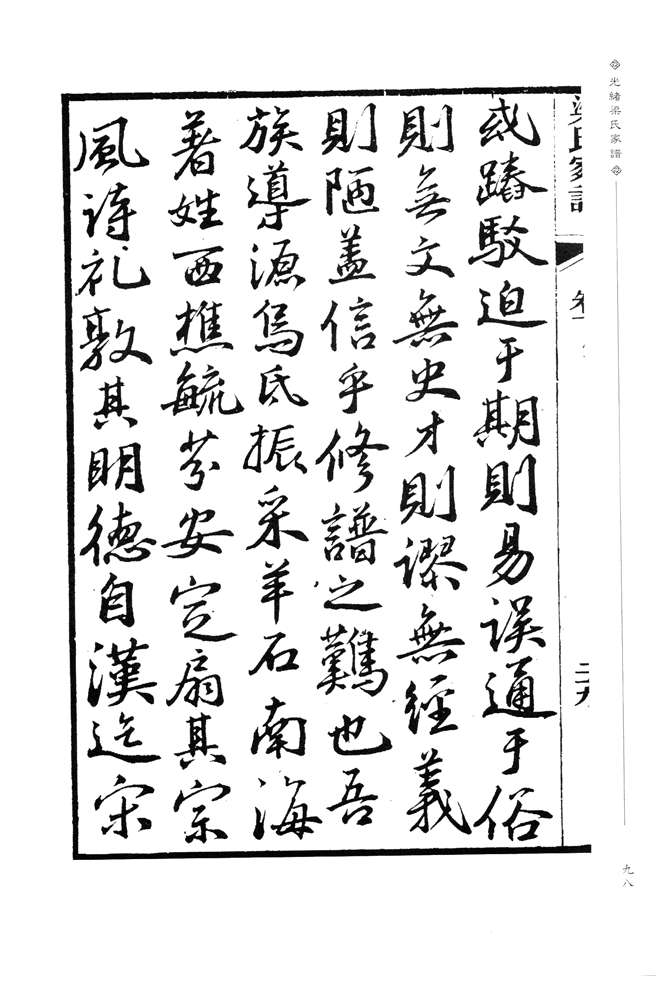 光緒梁氏家譜
九八
梁氏家譜
卷一
二十九
或踳駁迫于期則易誤通于俗
則無文無史才則謬無經義
則陋蓋信乎修譜之難也吾
族導源烏氏振采羊石南海
著姓西樵毓芬安定扇其宗
風詩礼敦其明德自漢迄宋